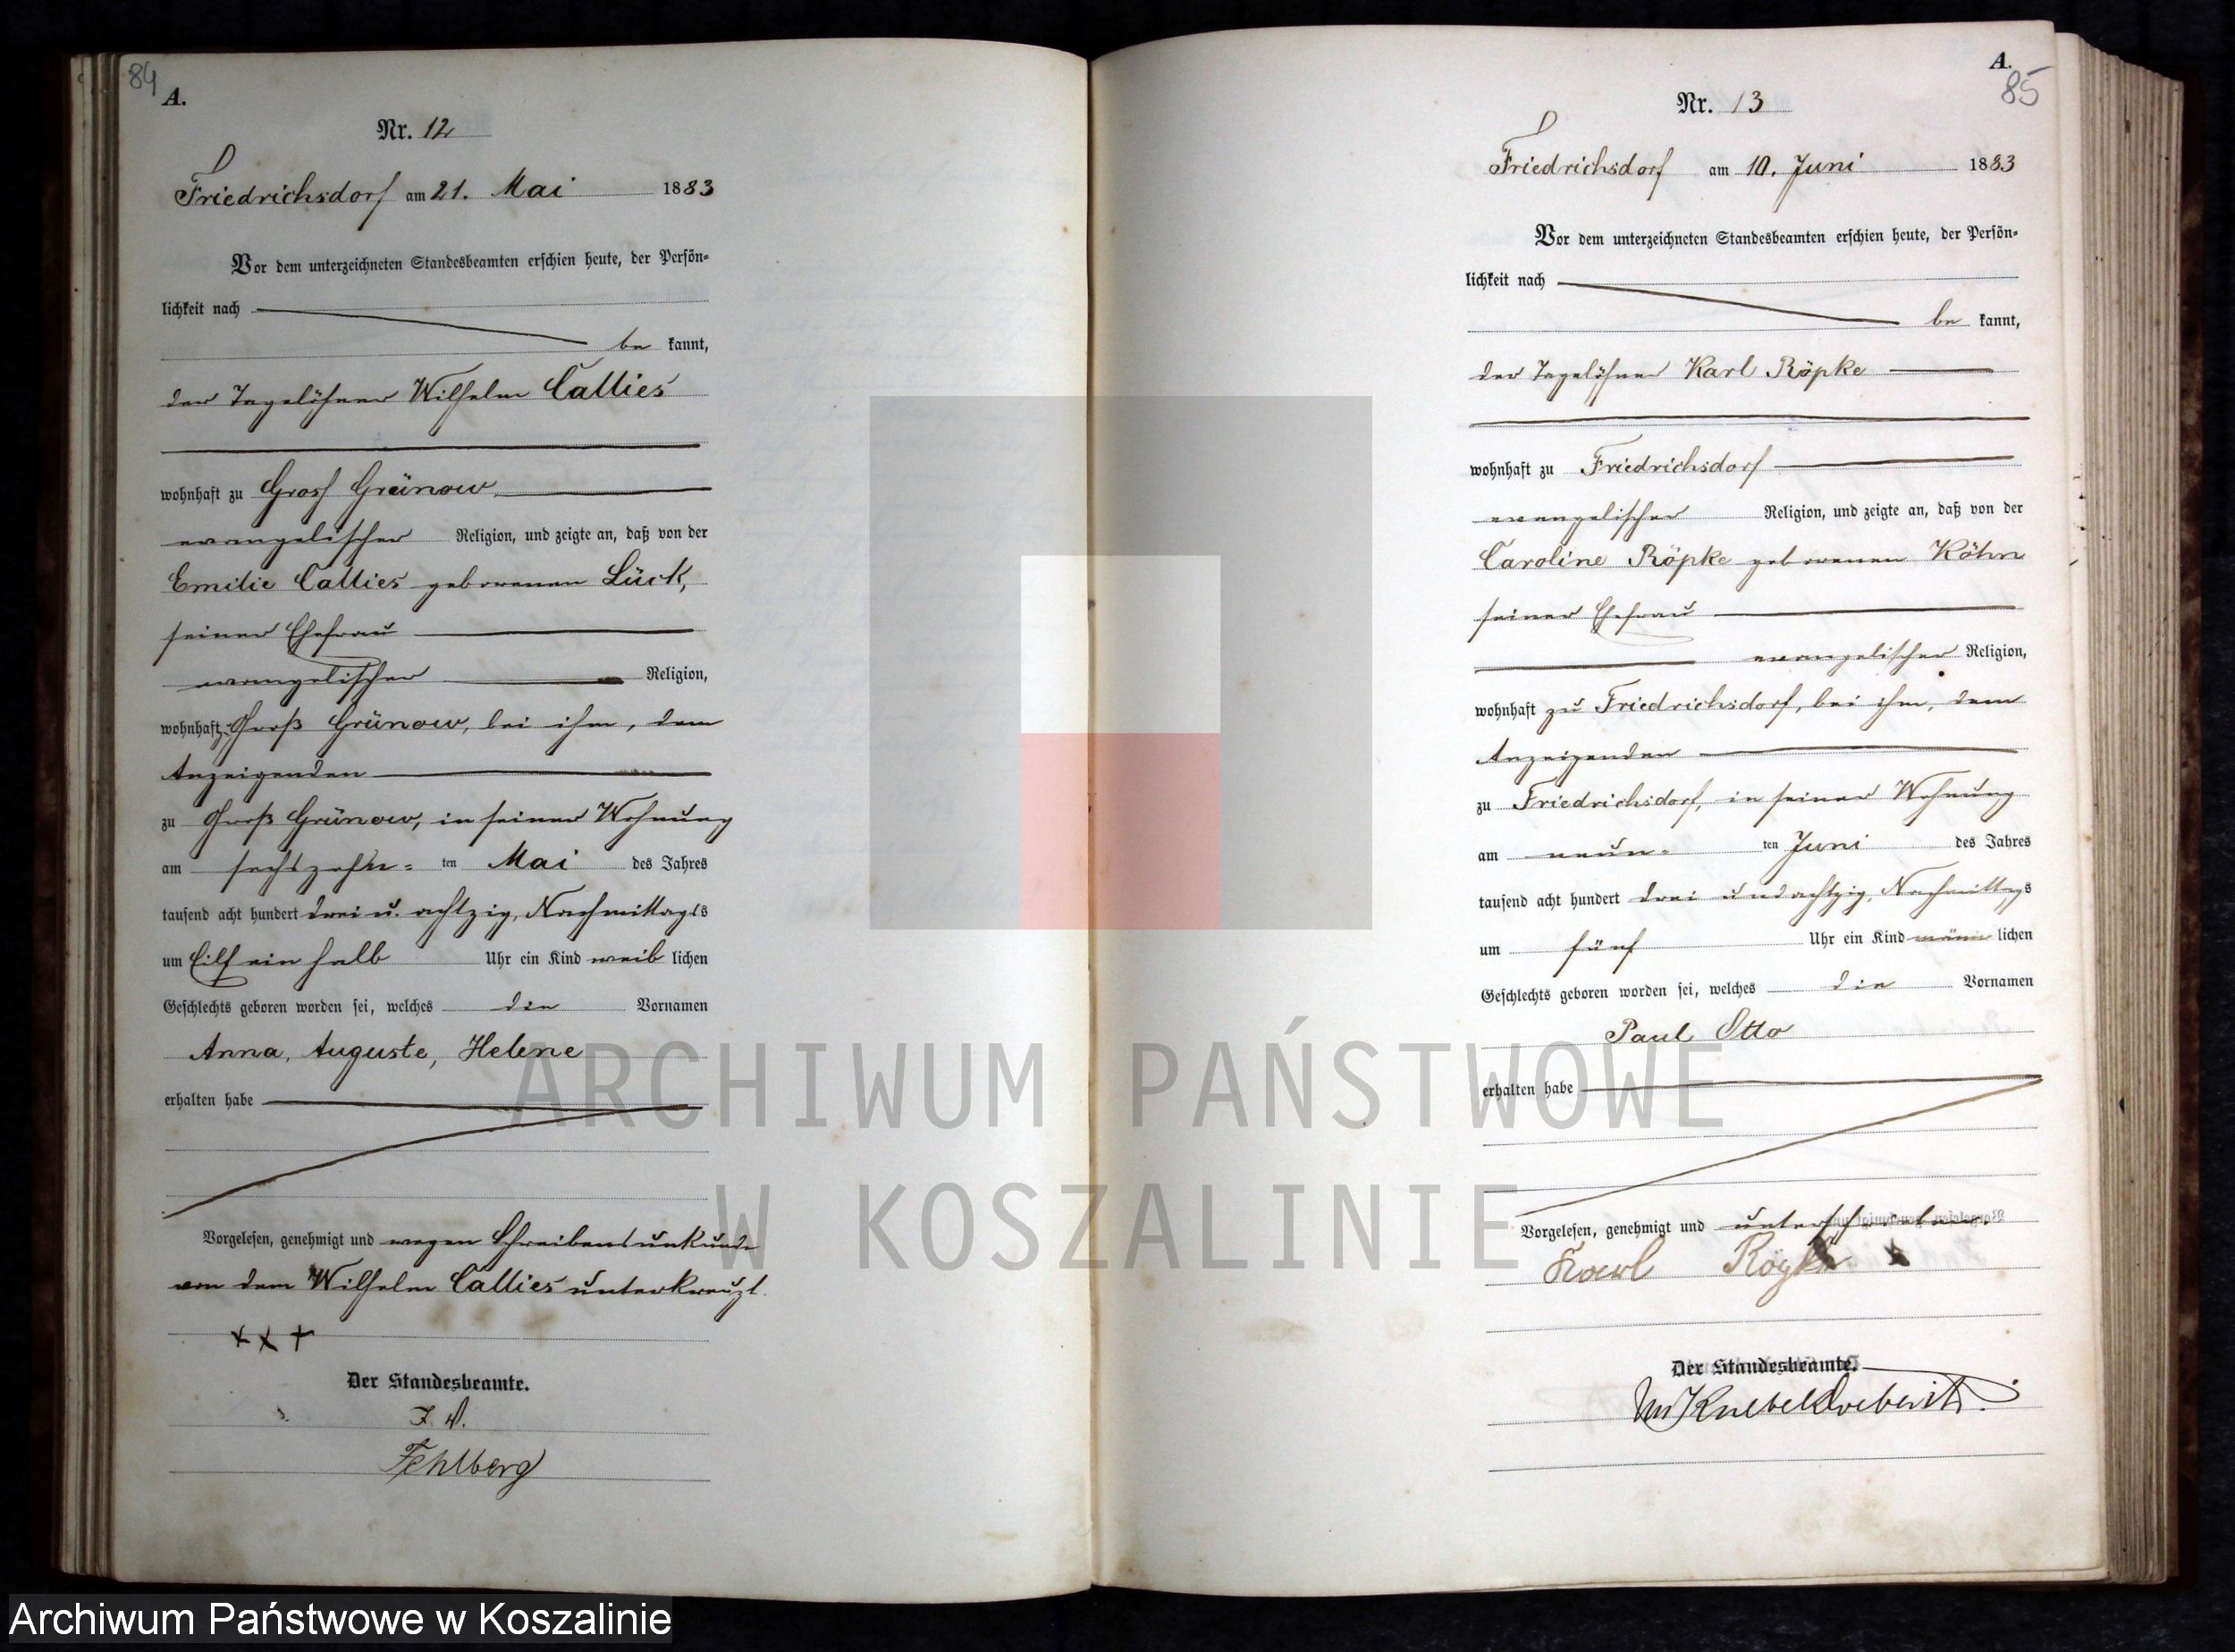 84
A.
Nr. 12
Friedrichsdorf am 21. Mai 1883
Vor dem unterzeichneten Standesbeamten erschien heute, der Persön-
lichkeit nach
be kannt,
der Tagelöhner Wilhelm Callies
wohnhaft zu Gross Grünow
evangelischer Religion, und zeigte an, daß von der
Emilie Callies geborenen Lück,
seiner Ehefrau
evangelischer Religion,
wohnhaft z. Groß Grünow, bei ihm, dem
Anzeigenden
zu Groß Grünow, in seiner Wohnung
am sechszehn- ten Mai des Jahres
tausend acht hundert drei u. achtzig, Nachmittags
um Eilf ein halb Uhr ein Kind weib lichen
Geschlechts geboren worden sei, welches die Vornamen
Anna, Auguste, Helene
erhalten habe
Vorgelesen, genehmigt und wegen Schreibensunkunde
von dem Wilhelm Callies unterkreuzt.
+ + +
Der Standesbeamte.
I. V.
Fehlberg
A.
85
Nr. 13
Friedrichsdorf am 10. Juni 1883
Vor dem unterzeichneten Standesbeamten erschien heute, der Persön-
lichkeit nach
be kannt,
der Tagelöhner Karl Röpke
wohnhaft zu Friedrichsdorf
evangelischer Religion, und zeigte an, daß von der
Caroline Röpke geborenen Köhn
seiner Ehefrau
evangelischer Religion,
wohnhaft zu Friedrichsdorf, bei ihm, dem
Anzeigenden
zu Friedrichsdorf, in seiner Wohnung
am neun- ten Juni des Jahres
tausend acht hundert drei und achtzig, Nachmittags
um fünf Uhr ein Kind männ lichen
Geschlechts geboren worden sei, welches die Vornamen
Paul Otto
erhalten habe
Vorgelesen, genehmigt und unterschrieben.
Karl Röpke
Der Standesbeamte.
ARCHIWUM PAŃSTWOWE
W KOSZALINIE
Archiwum Państwowe w Koszalinie